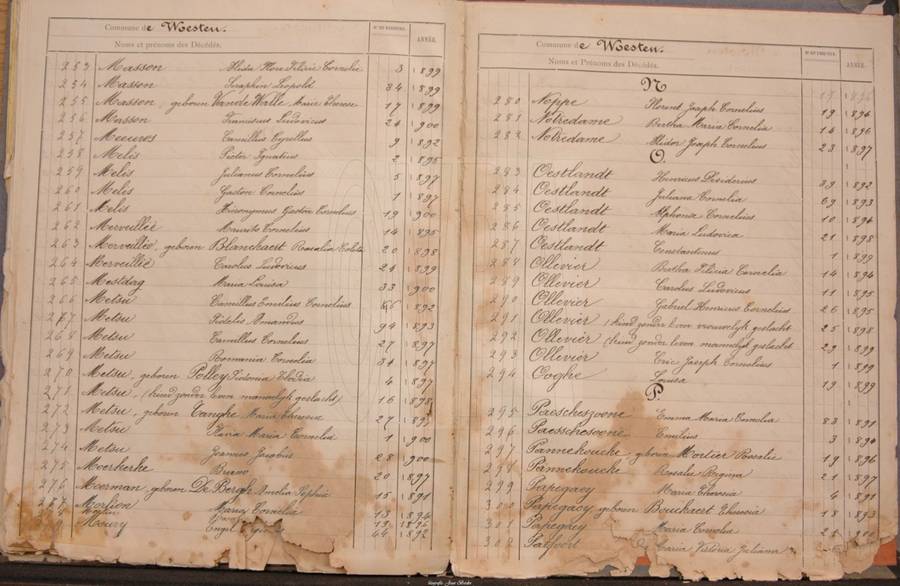 Commune de Woesten.
Noms et prénoms des Décédés. ANNÉE.
253 Masson 3 1899
254 Masson Seraphin Leopold 34 1899
255 Masson, geboren Vande Walle, Marie Therese 17 1899
256 Masson Franciscus Ludovicus 24 900
257 Meeuws Camillus Cyrillus 9 1892
258 Melis Pieter Ignatius 2 1895
259 Melis Julianus Cornelius 5 1897
260 Melis Gaston Cornelius 1 1897
261 Melis Hieronymus Gaston Cornelius 19 900
262 Merveillie Mauritz Cornelius 14 1895
263 Merveillie, geboren Blanckaert Rosalia 20 1898
264 Merveillie Carolus Ludovicus 24 1899
265 Mestdag Maria Louisa 33 900
266 Metsu Camillus Emilius Cornelius 66 1892
267 Metsu Fidelis Amandus 94 1893
268 Metsu Camillus Cornelius 27 1897
269 Metsu Romania Cornelia 34 1897
270 Metsu, geboren Polley 4 1897
271 Metsu, (kind zonder leven manelyk geslacht) 16 1898
272 Metsu, geboren Tanghe Maria Theresia 27
273 Metsu Maria Cornelia 1 900
274 Metsu Joannes Jacobus 28 900
275 Moerkerke Bruno 20 1897
276 Moerman, geboren De Bergh Amelia Sophia 15 1891
Morlion Maria Cornelia 13 1894
19 1896
44 1892
Commune de Woesten.
Noms et Prénoms des Décédés. ANNÉE.
N
280 Noppe Florent Joseph Cornelius 19 1896
281 Notredame Bertha Maria Cornelia 14 1896
282 Notredame Elidor Joseph Cornelius 23 1897
O.
283 Oestlandt Henricus Desiderius 39 1892
284 Oestlandt Juliana Cornelia 69 1893
285 Oestlandt Alphonse Cornelius 10 1894
286 Oestlandt Maria Ludovica 21 1898
287 Oestlandt Constantinus 1 1899
288 Ollevier Bertha Felicia Cornelia 14 1894
289 Ollevier Carolus Ludovicus 11 1895
290 Ollevier Gabriel Henricus Cornelius 26 1895
291 Ollevier (kind zonder leven vrouwelyk geslacht 25 1898
292 Ollevier (kind zonder leven manelyk geslacht 29 1899
293 Ollevier Eric Joseph Cornelius 1 1899
294 Ooghe Louisa 19 1899
P
295 Paescheszoone Emma Maria Cornelia 83 1891
296 Paesscheszoone Emilius 3 1894
297 Pannekoucke geboren Mortier Rosalie 19 1896
298 Pannekoucke Rosalie Regina 21 1897
299 Papegaey Maria Theresia 4 1891
300 Papegaey geboren Bouckaert Theresia 18 1893
301 Papegaey Maria Cornelia
302 Maria Victoria Juliana